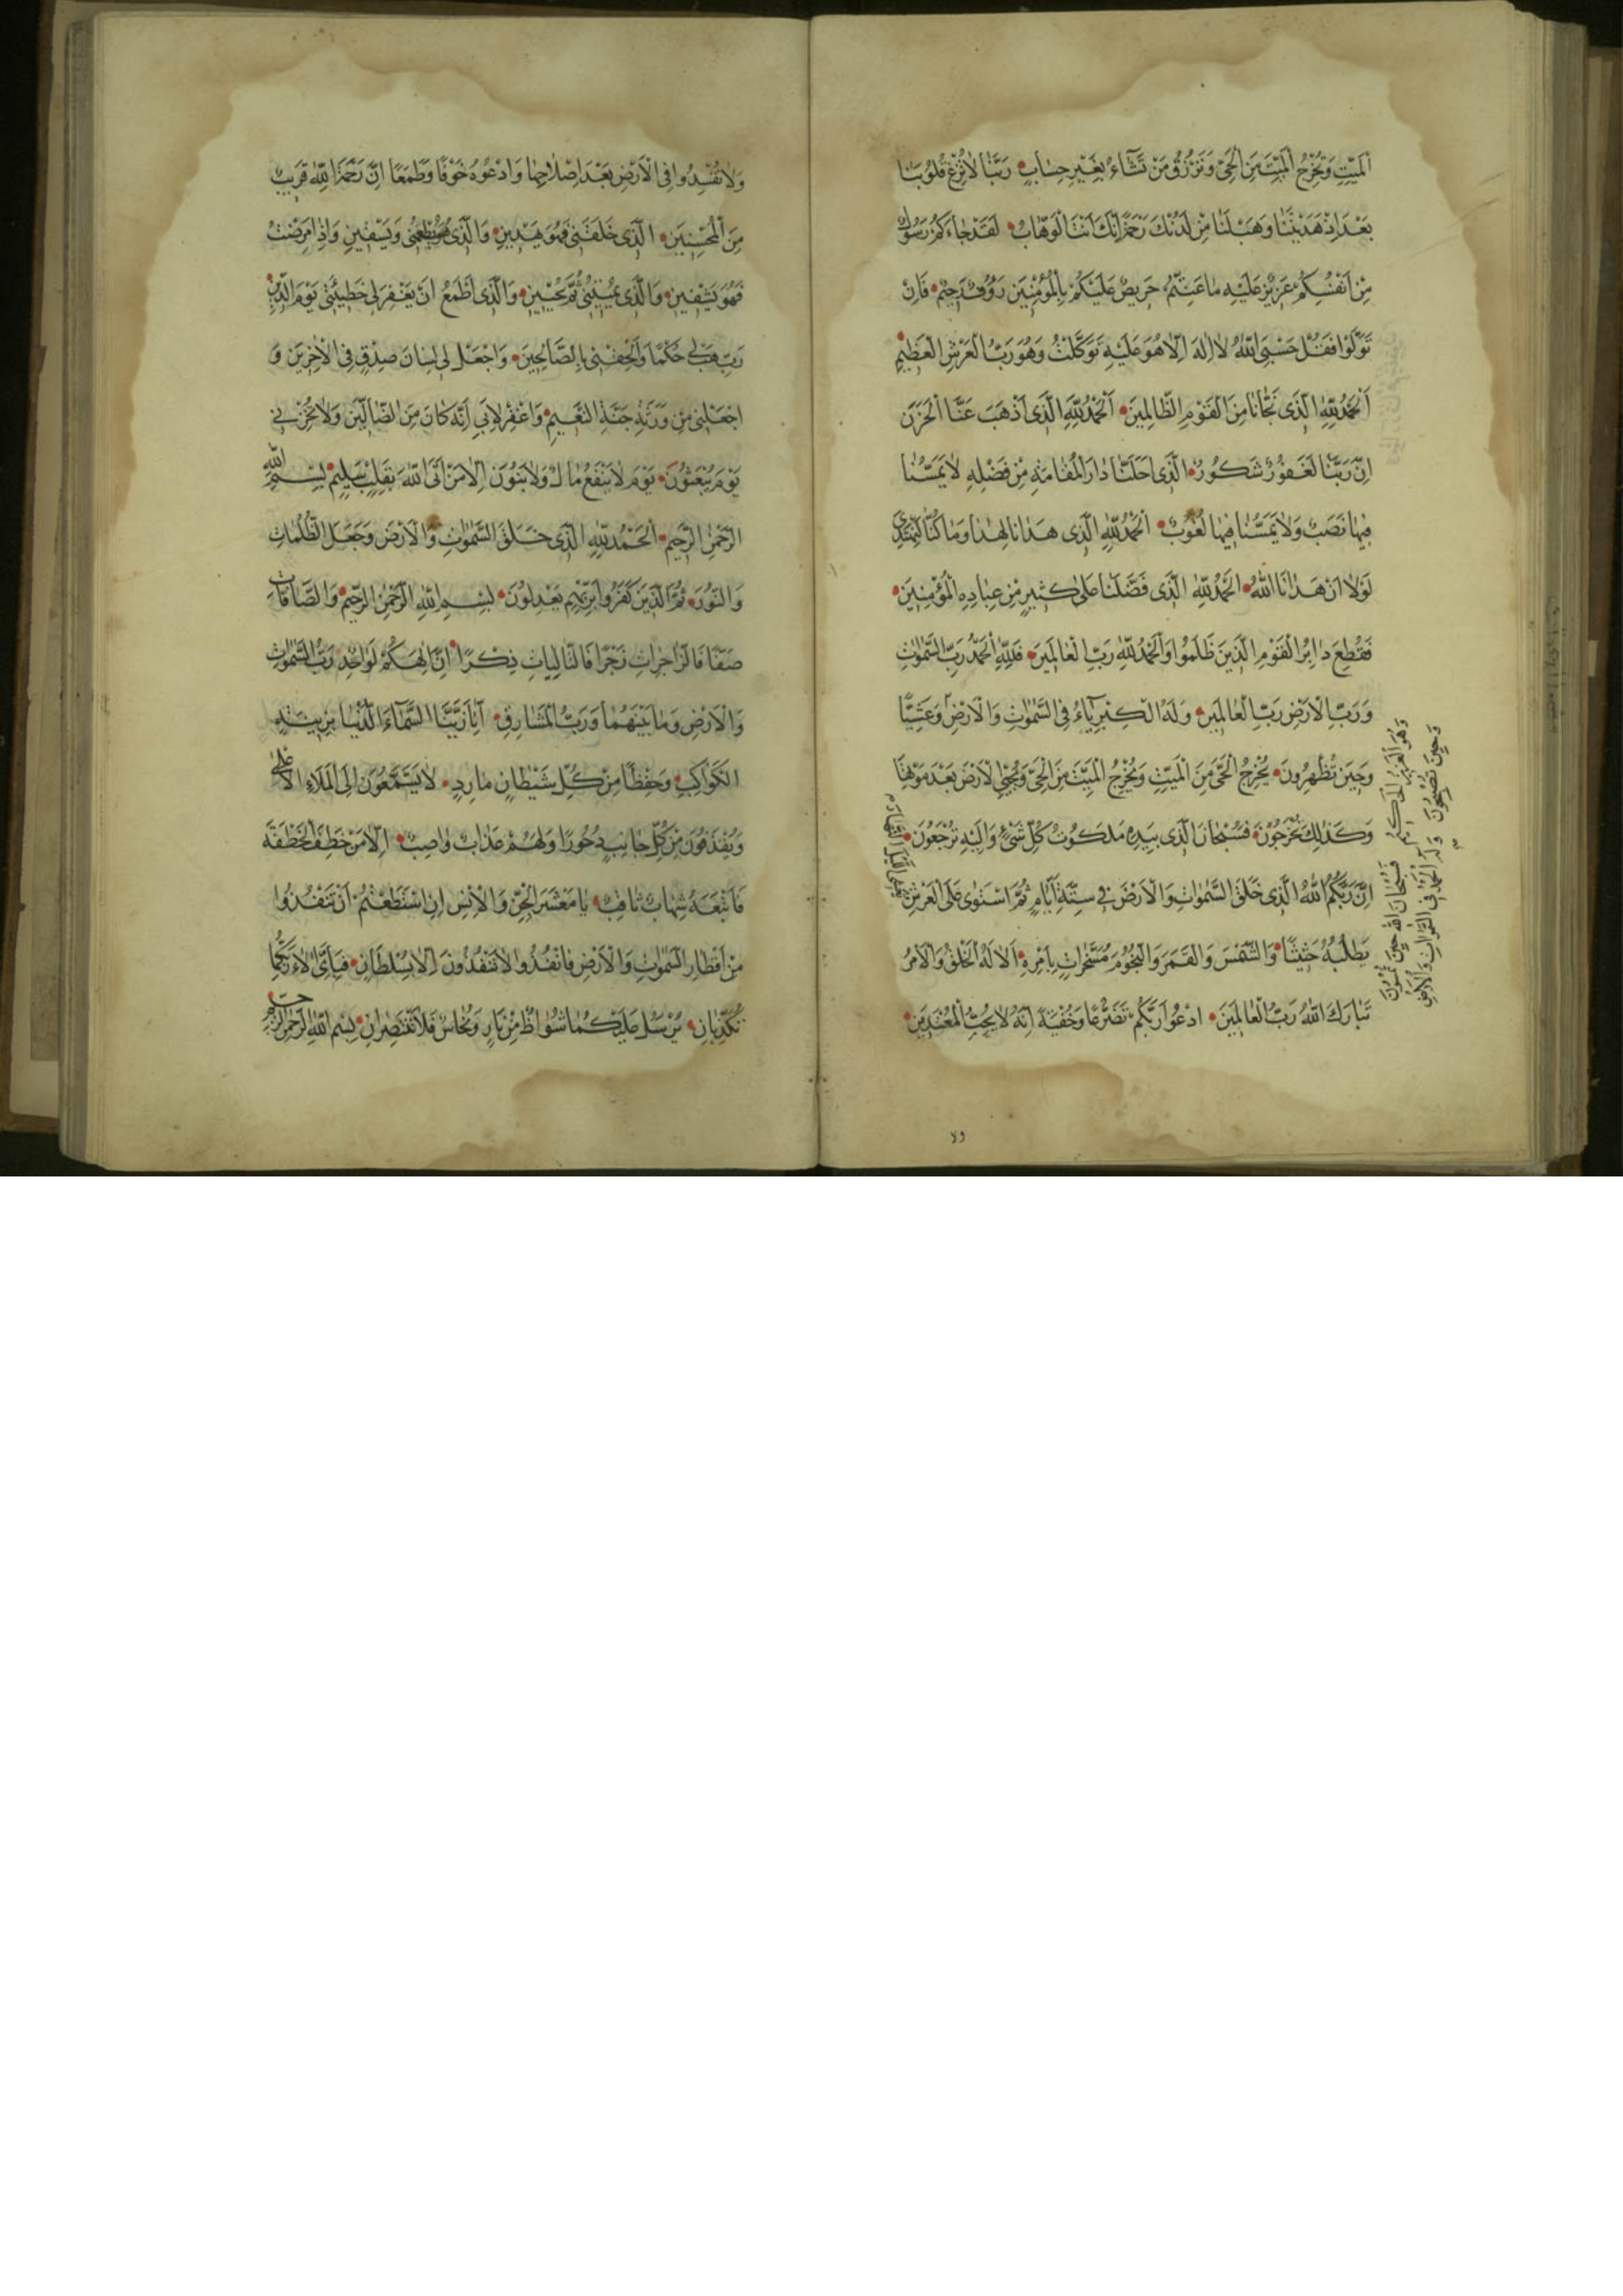 الْمَيِّتِ وَتُخْرِجُ الْمَيِّتَ مِنَ الْحَيِّ وَتَرْزُقُ مَنْ تَشَاءُ بِغَيْرِ حِسَابٍ رَبَّنَا لَا تُزِغْ قُلُوبَنَا
بَعْدَ اِذْ هَدَيْتَنَا وَهَبْ لَنَا مِنْ لَدُنْكَ رَحْمَةً اِنَّكَ اَنْتَ الْوَهَّابُ لَقَدْ جَاءَكُمْ رَسُولٌ
مِنْ اَنْفُسِكُمْ عَزِيزٌ عَلَيْهِ مَا عَنِتُّمْ حَرِيصٌ عَلَيْكُمْ بِالْمُؤْمِنِينَ رَؤُوفٌ رَحِيمٌ فَاِنْ
تَوَلَّوْا فَقُلْ حَسْبِيَ اللّٰهُ لَا اِلٰهَ اِلَّا هُوَ عَلَيْهِ تَوَكَّلْتُ وَهُوَ رَبُّ الْعَرْشِ الْعَظِيمِ
اَلْحَمْدُ لِلّٰهِ الَّذِي نَجَّانَا مِنَ الْقَوْمِ الظَّالِمِينَ اَلْحَمْدُ لِلّٰهِ الَّذِي اَذْهَبَ عَنَّا الْحَزَنَ
اِنَّ رَبَّنَا لَغَفُورٌ شَكُورٌ الَّذِي اَحَلَّنَا دَارَ الْمُقَامَةِ مِنْ فَضْلِهِ لَا يَمَسُّنَا
فِيهَا نَصَبٌ وَلَا يَمَسُّنَا فِيهَا لُغُوبٌ اَلْحَمْدُ لِلّٰهِ الَّذِي هَدَانَا لِهٰذَا وَمَا كُنَّا لِنَهْتَدِيَ
لَوْلَا اَنْ هَدَانَا اللّٰهُ اَلْحَمْدُ لِلّٰهِ الَّذِي فَضَّلَنَا عَلٰى كَثِيرٍ مِنْ عِبَادِهِ الْمُؤْمِنِينَ
فَقُطِعَ دَابِرُ الْقَوْمِ الَّذِينَ ظَلَمُوا وَالْحَمْدُ لِلّٰهِ رَبِّ الْعَالَمِينَ فَلِلّٰهِ الْحَمْدُ رَبِّ السَّمٰوَاتِ
وَرَبِّ الْاَرْضِ رَبِّ الْعَالَمِينَ وَلَهُ الْكِبْرِيَاءُ فِي السَّمٰوَاتِ وَالْاَرْضِ وَعَشِيًّا
وَحِينَ تُظْهِرُونَ يُخْرِجُ الْحَيَّ مِنَ الْمَيِّتِ وَيُخْرِجُ الْمَيِّتَ مِنَ الْحَيِّ وَيُحْيِي الْاَرْضَ بَعْدَ مَوْتِهَا
وَكَذٰلِكَ تُخْرَجُونَ فَسُبْحَانَ الَّذِي بِيَدِهِ مَلَكُوتُ كُلِّ شَيْءٍ وَاِلَيْهِ تُرْجَعُونَ
اِنَّ رَبَّكُمُ اللّٰهُ الَّذِي خَلَقَ السَّمٰوَاتِ وَالْاَرْضَ فِي سِتَّةِ اَيَّامٍ ثُمَّ اسْتَوٰى عَلَى الْعَرْشِ
يُغْشِي اللَّيْلَ النَّهَارَ
يَطْلُبُهُ حَثِيثًا وَالشَّمْسَ وَالْقَمَرَ وَالنُّجُومَ مُسَخَّرَاتٍ بِاَمْرِهِ اَلَا لَهُ الْخَلْقُ وَالْاَمْرُ
تَبَارَكَ اللّٰهُ رَبُّ الْعَالَمِينَ ادْعُوا رَبَّكُمْ تَضَرُّعًا وَخُفْيَةً اِنَّهُ لَا يُحِبُّ الْمُعْتَدِينَ
وَهُوَ الْعَزِيزُ الْحَكِيمُ فَسُبْحَانَ اللّٰهِ حِينَ تُمْسُونَ
وَحِينَ تُصْبِحُونَ وَلَهُ الْحَمْدُ فِي السَّمٰوَاتِ وَالْاَرْضِ
وَلَا تُفْسِدُوا فِي الْاَرْضِ بَعْدَ اِصْلَاحِهَا وَادْعُوهُ خَوْفًا وَطَمَعًا اِنَّ رَحْمَةَ اللّٰهِ قَرِيبٌ
مِنَ الْمُحْسِنِينَ الَّذِي خَلَقَنِي فَهُوَ يَهْدِينِ وَالَّذِي هُوَ يُطْعِمُنِي وَيَسْقِينِ وَاِذَا مَرِضْتُ
فَهُوَ يَشْفِينِ وَالَّذِي يُمِيتُنِي ثُمَّ يُحْيِينِ وَالَّذِي اَطْمَعُ اَنْ يَغْفِرَ لِي خَطِيئَتِي يَوْمَ الدِّينِ
رَبِّ هَبْ لِي حُكْمًا وَاَلْحِقْنِي بِالصَّالِحِينَ وَاجْعَلْ لِي لِسَانَ صِدْقٍ فِي الْاٰخِرِينَ وَ
اجْعَلْنِي مِنْ وَرَثَةِ جَنَّةِ النَّعِيمِ وَاغْفِرْ لِاَبِي اِنَّهُ كَانَ مِنَ الضَّالِّينَ وَلَا تُخْزِنِي
يَوْمَ يُبْعَثُونَ يَوْمَ لَا يَنْفَعُ مَالٌ وَلَا بَنُونَ اِلَّا مَنْ اَتَى اللّٰهَ بِقَلْبٍ سَلِيمٍ بِسْمِ اللّٰهِ
الرَّحْمٰنِ الرَّحِيمِ اَلْحَمْدُ لِلّٰهِ الَّذِي خَلَقَ السَّمٰوَاتِ وَالْاَرْضَ وَجَعَلَ الظُّلُمَاتِ
وَالنُّورَ ثُمَّ الَّذِينَ كَفَرُوا بِرَبِّهِمْ يَعْدِلُونَ بِسْمِ اللّٰهِ الرَّحْمٰنِ الرَّحِيمِ وَالصَّافَّاتِ
صَفًّا فَالزَّاجِرَاتِ زَجْرًا فَالتَّالِيَاتِ ذِكْرًا اِنَّ اِلٰهَكُمْ لَوَاحِدٌ رَبُّ السَّمٰوَاتِ
وَالْاَرْضِ وَمَا بَيْنَهُمَا وَرَبُّ الْمَشَارِقِ اِنَّا زَيَّنَّا السَّمَاءَ الدُّنْيَا بِزِينَةٍ
الْكَوَاكِبِ وَحِفْظًا مِنْ كُلِّ شَيْطَانٍ مَارِدٍ لَا يَسَّمَّعُونَ اِلَى الْمَلَاءِ الْاَعْلٰى
وَيُقْذَفُونَ مِنْ كُلِّ جَانِبٍ دُحُورًا وَلَهُمْ عَذَابٌ وَاصِبٌ اِلَّا مَنْ خَطِفَ الْخَطْفَةَ
فَاَتْبَعَهُ شِهَابٌ ثَاقِبٌ يَا مَعْشَرَ الْجِنِّ وَالْاِنْسِ اِنِ اسْتَطَعْتُمْ اَنْ تَنْفُذُوا
مِنْ اَقْطَارِ السَّمٰوَاتِ وَالْاَرْضِ فَانْفُذُوا لَا تَنْفُذُونَ اِلَّا بِسُلْطَانٍ فَبِاَيِّ اٰلَاءِ رَبِّكُمَا
تُكَذِّبَانِ يُرْسَلُ عَلَيْكُمَا شُوَاظٌ مِنْ نَارٍ وَنُحَاسٌ فَلَا تَنْتَصِرَانِ بِسْمِ اللّٰهِ الرَّحْمٰنِ الرَّحِيمِ